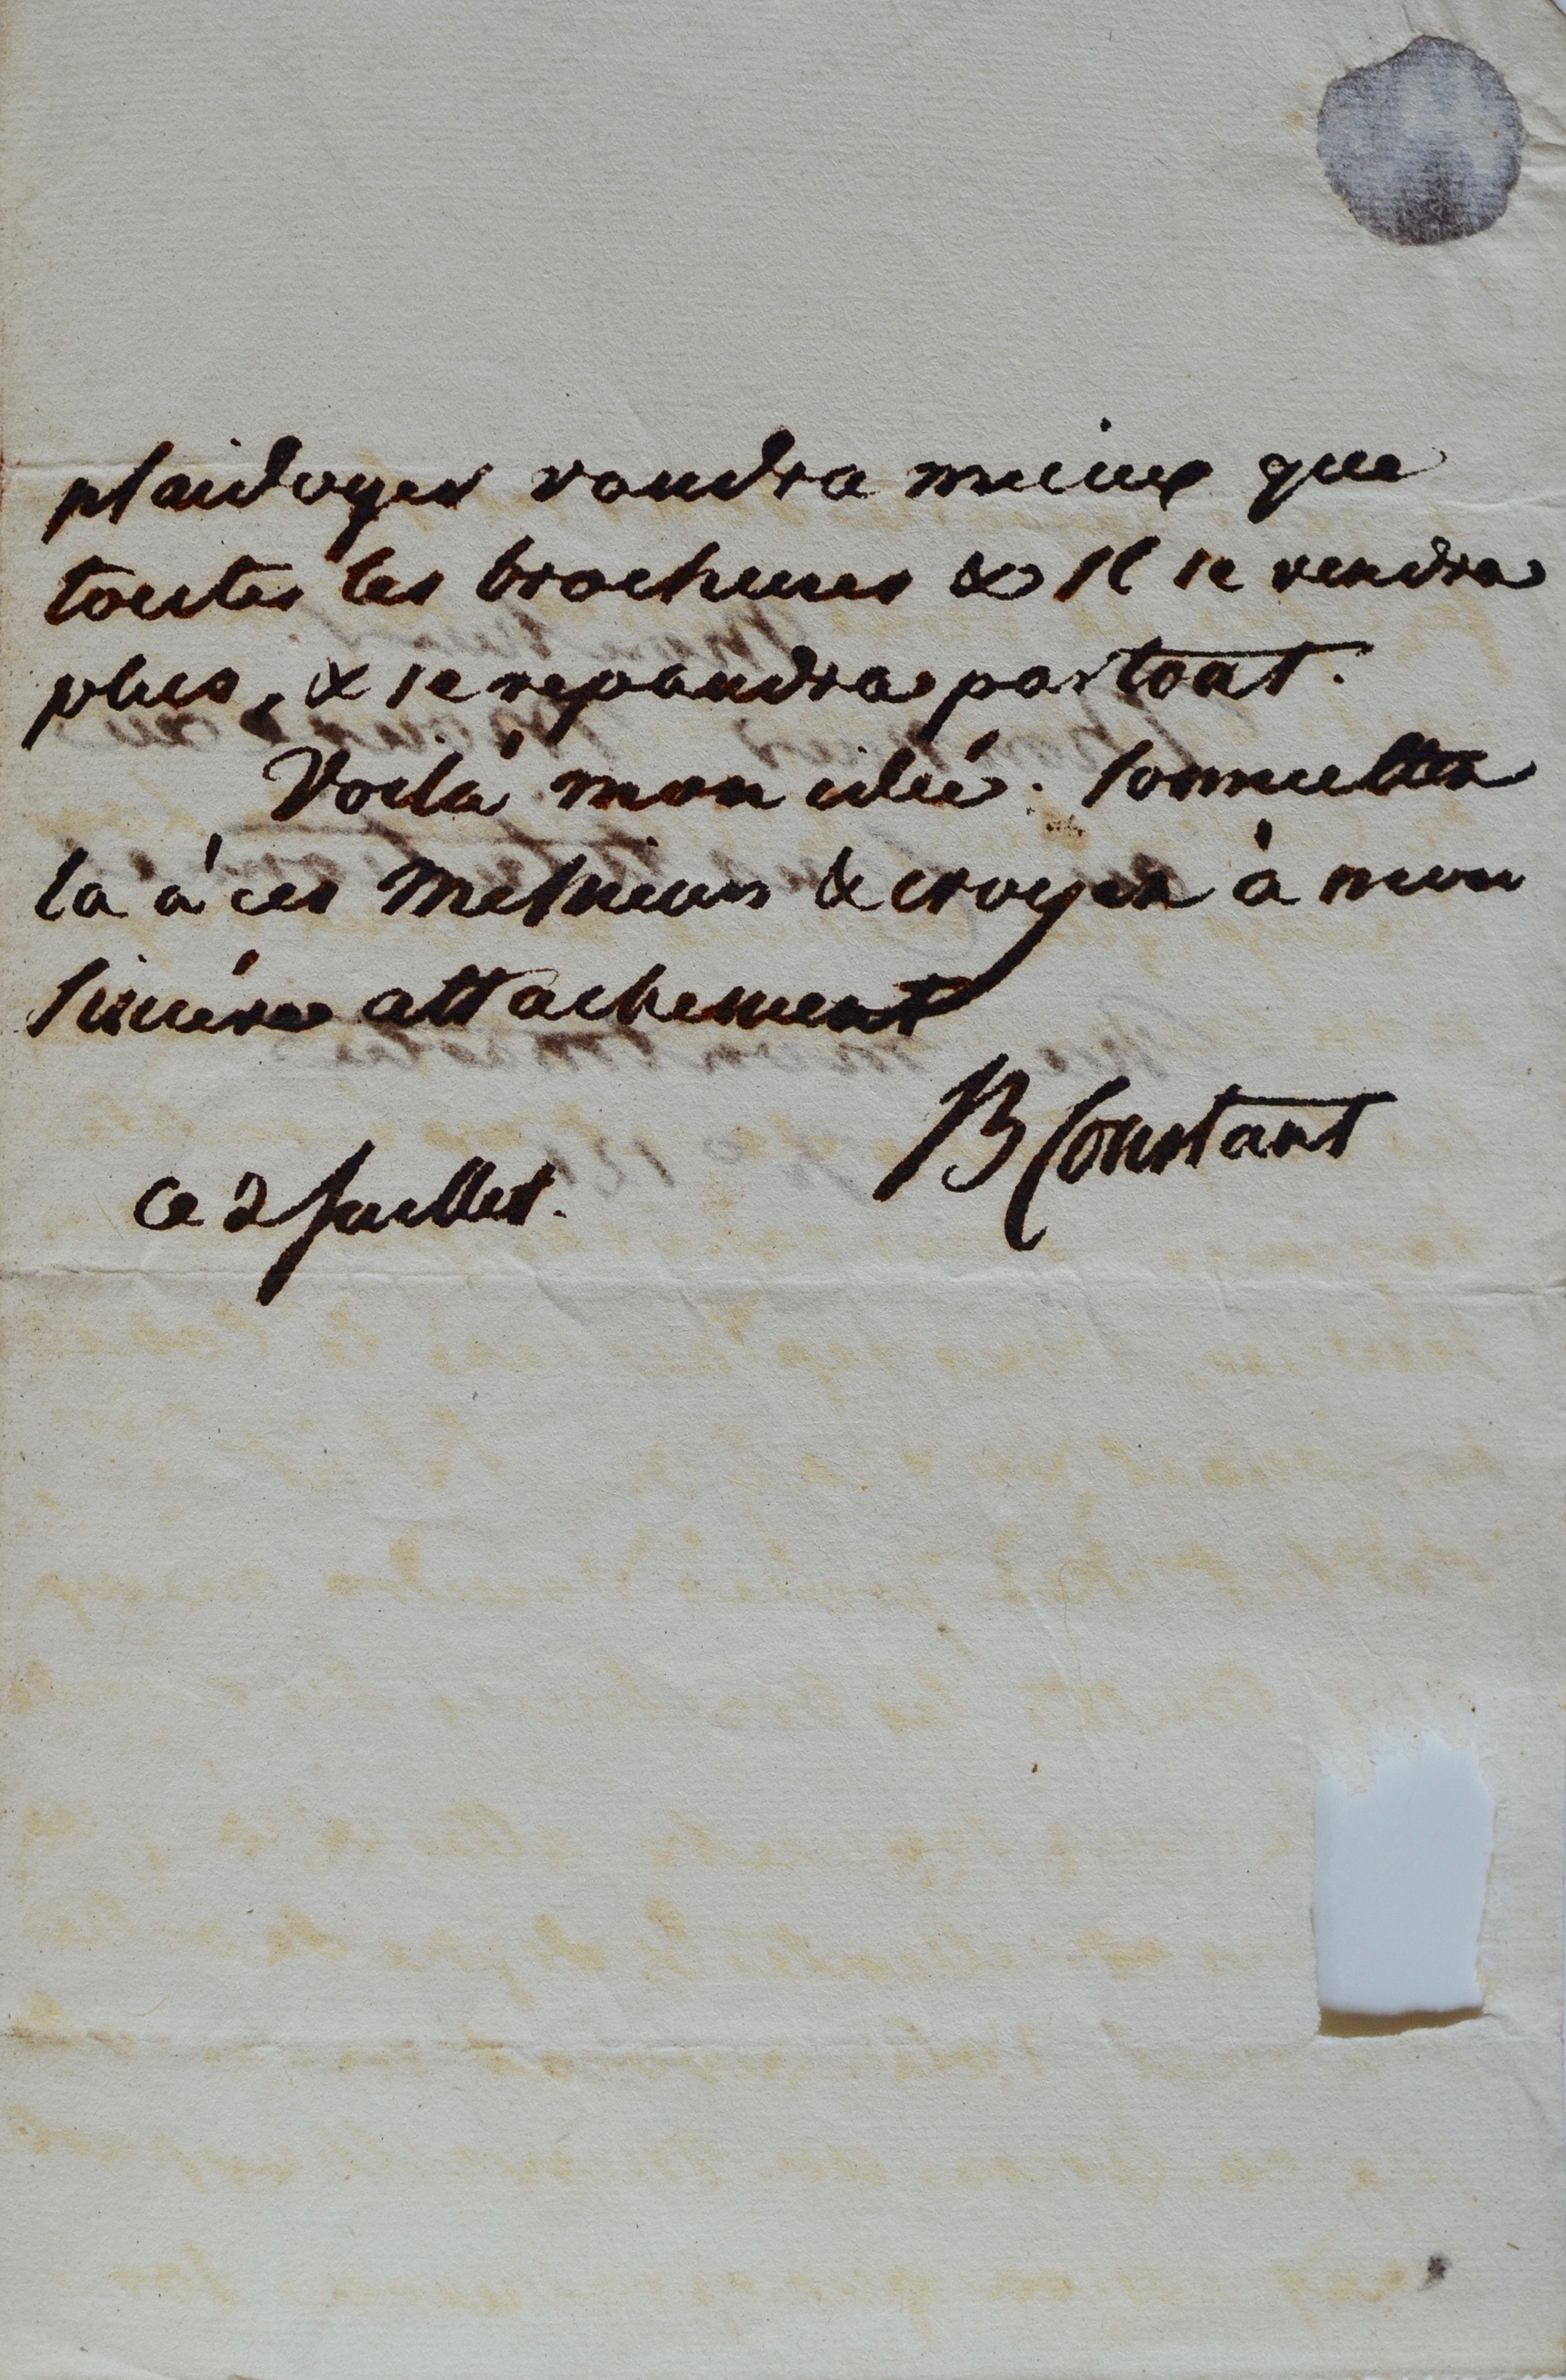 plaidoyer vaudra mieux que
toutes les brochures & il se vendra
plus, & se repandra partout.
Voilà mon idée. Soumettez
la à ces Messieurs & croyez à mon
sincére attachement
B Constant
ce 2 Juillet.